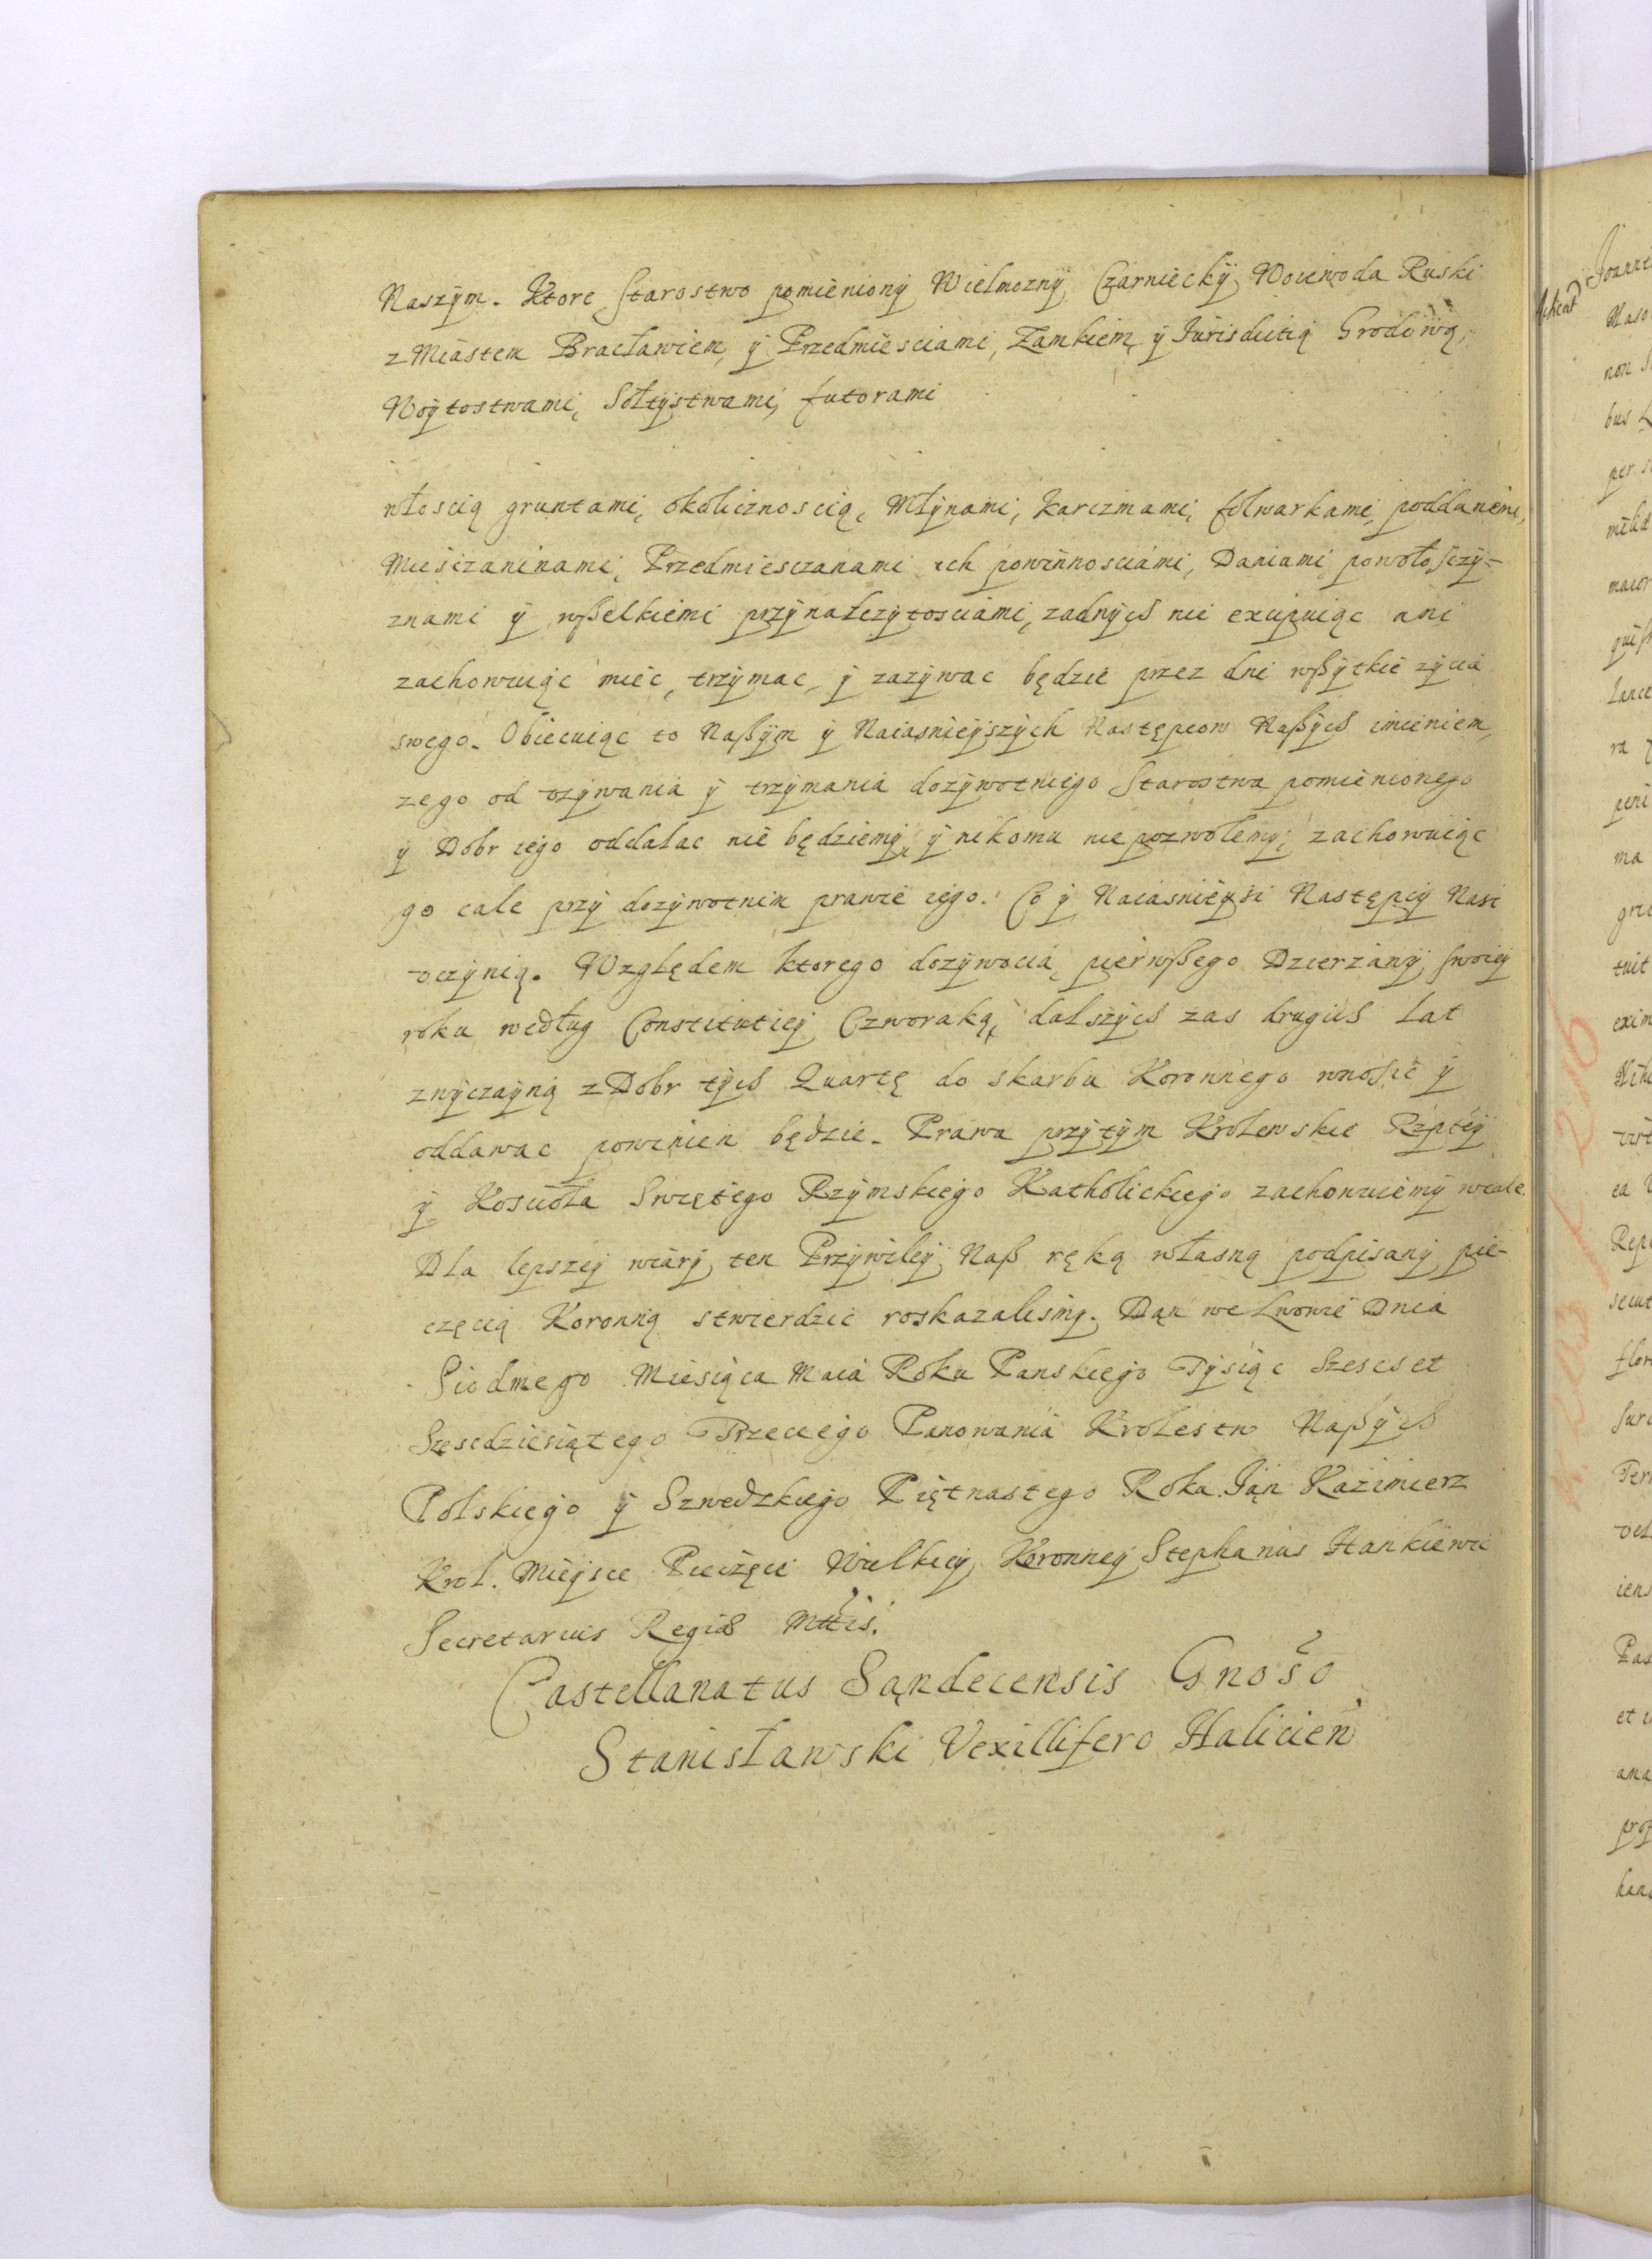 Naszym. Ktore Starostwo pomieniony Wielmozny Czarniecky Woiewoda Ruski
z Miastem Bracławiem, y Przedmiesciami, Zamkiem y Jurisdictią Grodową,
Woytostwami, Sołtystwami, futorami
włoscią gruntami, okolicznoscią, Młynami, karczmami, folwarkami, poddanemi,
Miesczaninami, Przedmiesczanami ich powinnosciami, Daniami, powołosczy-
znami y wßelkiemi przynależytosciami, zadnych nie excipuiąc ani
zachowuiąc miec, trzymac, y zazywac będzie przez dni wßytkie zycia
swego. Obiecuiąc to Naßym y Naiasnieyszych Następcow Naßych imieniem,
ze go od vzywania y trzymania dozywotniego Starostwa pomienionego
y Dobr iego oddalac nie będziemy, y nikomu nie pozwolemy, zachowuiąc
go cale przy dozywotnim prawie iego. Co y Naiasnieysi Następcy Nasi
vczynią. Względem ktorego dozywocia, pierwßego Dzierzawy swoiey
roku według Constitutiey Czworaką, dalszych zas drugich lat
zwyczayną z Dobr tych Quartę do skarbu Koronnego wnosic y
oddawac powinien będzie. Prawa przytym Krolewskie Rzptey
y Koscioła Swiętego Rzymskiego Katholickiego zachowuiemy wcale.
Dla lepszey wiary ten Przywiley Naß ręką własną podpisany, pie-
częcią Koronną stwierdzic roskazalismy. Dan we Lwowie Dnia
Siodmego Miesiąca Maia Roku Panskiego Tysiąc Szescset
Szescdziesiątego Trzeciego Panowania Krolestw Naßych
Polskiego y Szwedzkiego Piętnastego Roku. Jan Kazimierz
Krol. Mieysce Pieczęci Wielkiey Koronney Stephanus Hankiewic
Secretarius Regiae Mttis.
Castellanatus Sandecensis Gnoso
Stanisławski Vexillifero Halicien